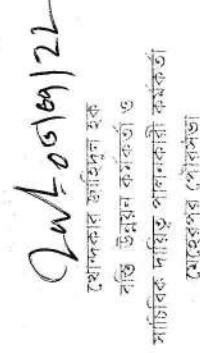 ০৫|০৬|২২
খোন্দকার জাহিদুল হক
বস্তি উন্নয়ন কর্মকর্তা ও
সাচিবিক দায়িত্ব পালনকারী কর্মকর্তা
মেহেরপুর পৌরসভা